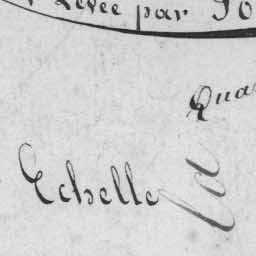 Levée par Jo
Qua
Echelle
la